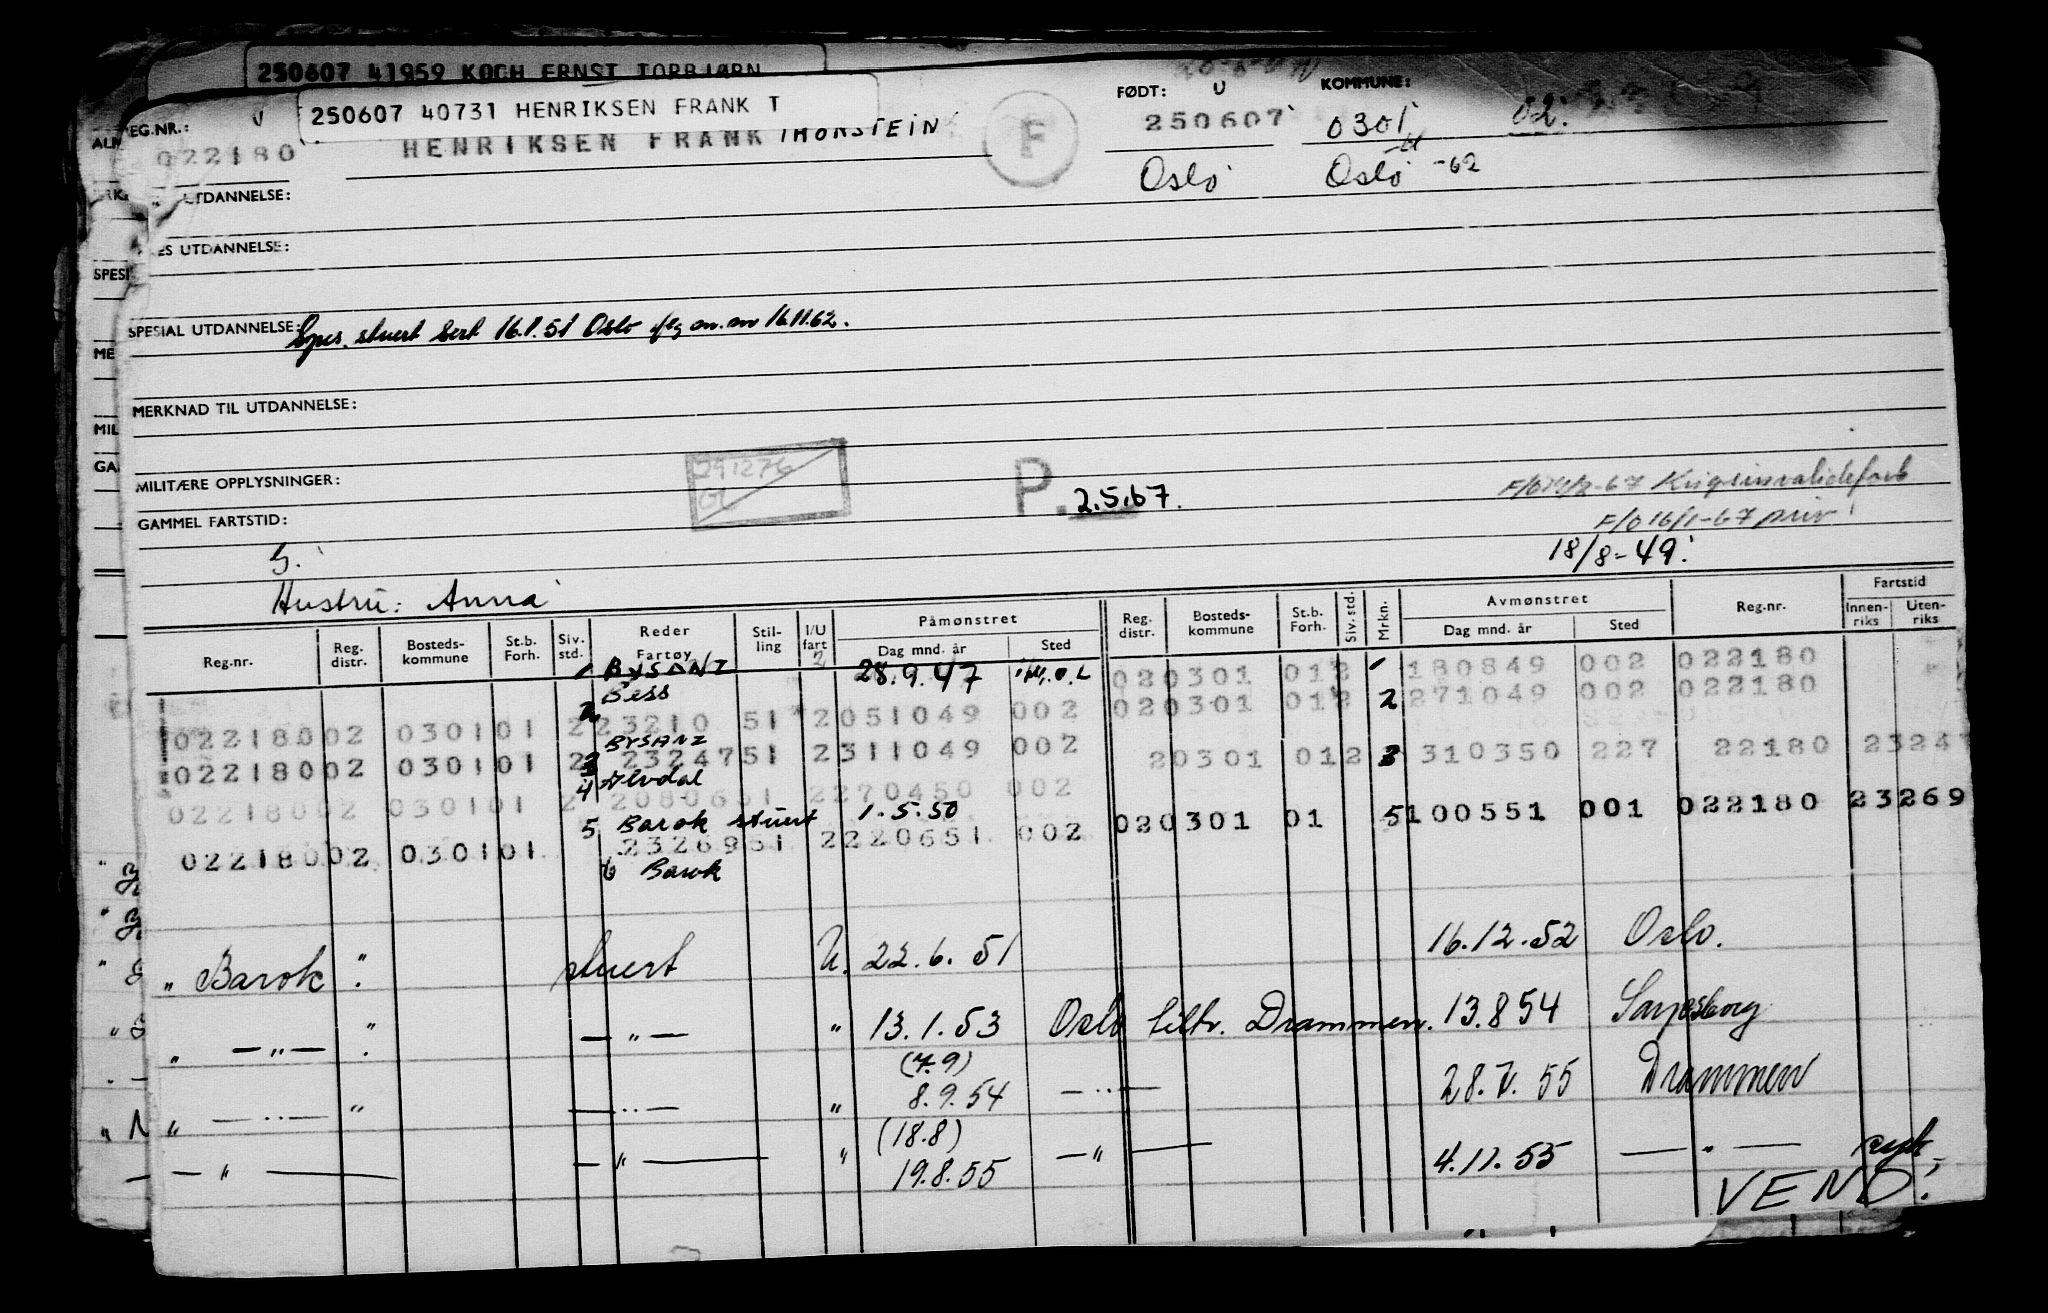 250607 41959 KOCH ERNST TORBJØRN
250607 40731 HENRIKSEN FRANK T
REG.NR.: 022180
HENRIKSEN FRANK THORSTEIN
F
FØDT: 250607 Oslo
KOMMUNE: 0301 Oslo -62
02.
UTDANNELSE:
UTDANNELSE:
SPESIAL UTDANNELSE: Spes. stuert Sert 16.1.51 Oslo 16.11.62.
MERKNAD TIL UTDANNELSE:
MILITÆRE OPPLYSNINGER:
291276
GL
P. 2.5.67.
Krigsinvalideforb
F/O 16/1-67 priv
GAMMEL FARTSTID:
18/8-49.
Hustru: Anna
Reg.nr. Reg. distr. Bosteds- kommune St.b. Forh. Siv. std. Reder Fartøy Stil- ling I/U fart Påmønstret Dag mnd. år Sted Reg. distr. Bosteds- kommune St.b. Forh. Siv. std. Mrkn. Avmønstret Dag mnd. år Sted Reg.nr. Fartstid Innen- riks Uten- riks
1 BYSANZ 2 28.9.47 020301 012 1 180849 002 022180
2 Bess
02218002 030101 223210 51 2051049 002 020301 012 2 271049 002 022180
3 BYSANZ
02218002 030101 2 23247 51 2311049 002 20301 012 3 310350 227 22180 23247
4 Alvdal
02218002 030101 2 20806 51 2270450 002
5 Barok stuert 1.5.50 020301 01 5 100551 001 022180 23269
02218002 030101 23269 51 2220651 002
6 Barok
" Barok " stuert U. 22.6.51 16.12.52 Oslo.
" — " — " — " — " 13.1.53 Oslo tiltr. Drammen. 13.8 54 Sarpsborg
(7.9)
" — " — " — " — " 8.9.54 — " — 28.7.55 Drammen
(18.8)
— " — — " — " 19.8.55 — " — 4.11.55 — " —
VEND!